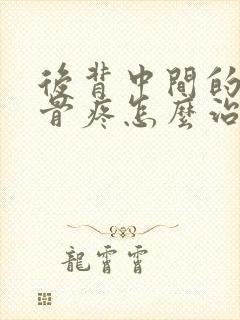 後背中間的
骨疼怎麼治
龍霄霄